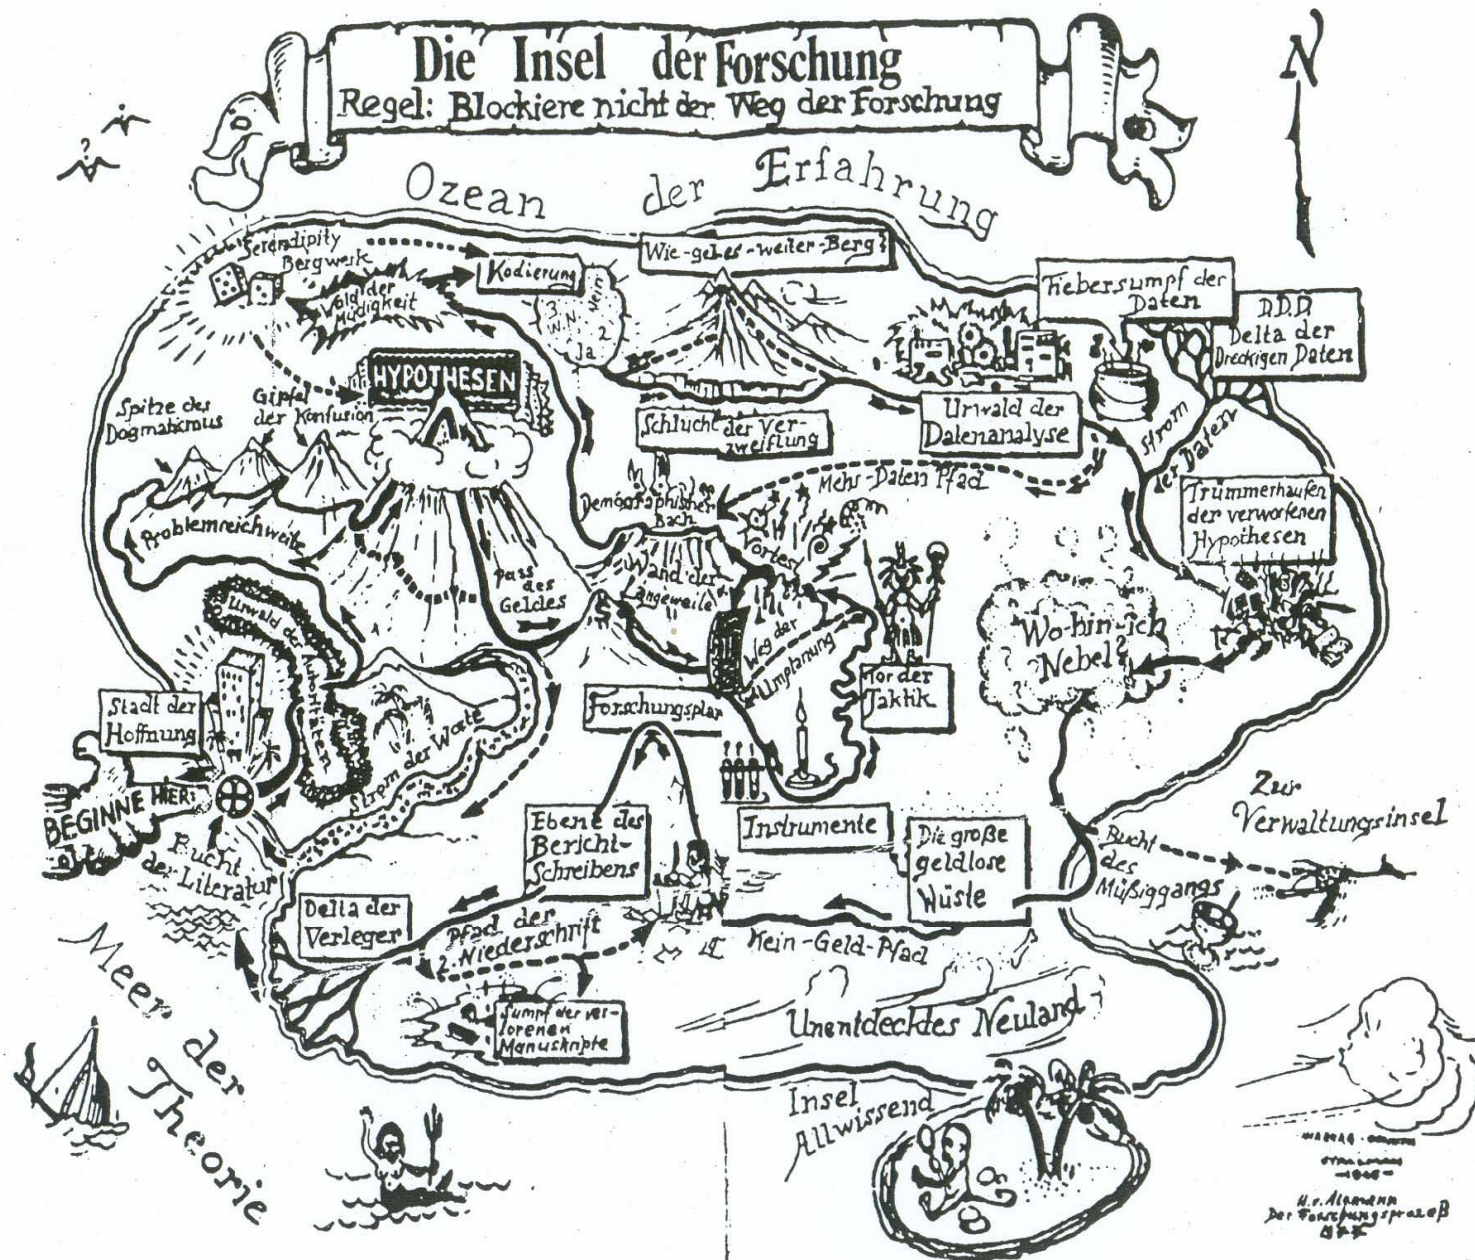 Die Insel der Forschung
Regel: Blockiere nicht der Weg der Forschung
N
?
Ozean der Erfahrung
Serendipity
Bergwerk
Wald der
Müdigkeit
Kodierung
3.
W.N.
Nein
2
Ja
Wie-geht-es-weiter-Berg?
Fiebersumpf der
Daten
D.D.D.
Delta der
Dreckigen Daten
HYPOTHESEN
Spitze des
Dogmatismus
Gipfel
der Konfusion
Schlucht der Ver-
zweiflung
Urwald der
Datenanalyse
Strom
der Daten
Mehr-Daten Pfad
Demographischer
Bach
Trümmerhaufen
der verworfenen
Hypothesen
Problemreichweite
Pass
des
Geldes
Wand der
Langeweile
Vortest
Weg der
Umplanung
Wo-hin-ich
Nebel?
Urwald der
Autoritäten
Stadt der
Hoffnung
Forschungsplan
Tor der
Taktik
Strom der Worte
BEGINNE HIER:
Bucht
der Literatur
Ebene des
Bericht-
Schreibens
Instrumente
Die große
geldlose
Wüste
Zur
Verwaltungsinsel
Bucht
des
Müßiggangs
Delta der
Verleger
Pfad der
2. Niederschrift
Kein-Geld-Pfad
Sumpf der ver-
lorenen
Manuskripte
Unentdecktes Neuland
Meer der
Theorie
Insel
Allwissend
H.v. Alemann
Der Forschungsprozeß